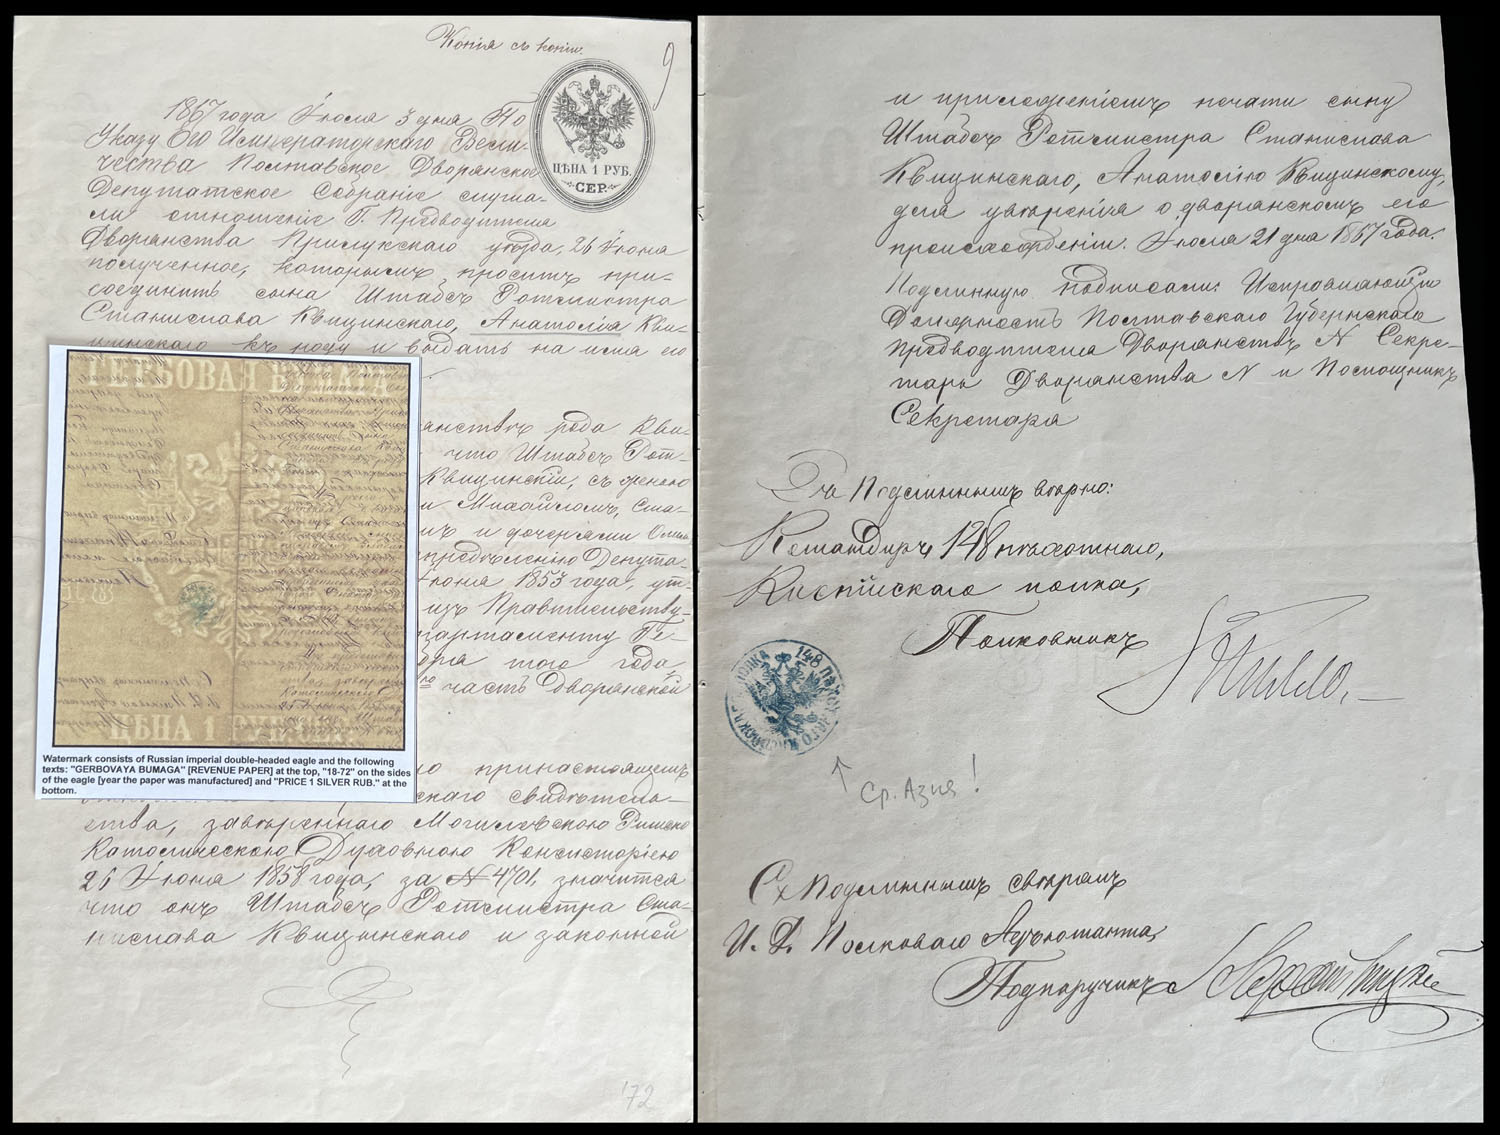 Копія съ копіи.
9
1867 года Іюля 3 дня По
Указу Его Императорскаго Вели-
чества Полтавское Дворянское
Депутатское Собраніе слуша-
ли отношеніе Г. Предводителя
Дворянства Прилукскаго уѣзда, 26 Іюня
полученное, которымъ проситъ при-
соединить сына Штабсъ Ротмистра
Станислава Квицинскаго, Анатолія Кви-
цинскаго къ роду и выдать на имя его
ЦѢНА 1 РУБ.
СЕР.
ГЕРБОВАЯ БУМАГА
ЦѢНА 1 РУБ
Watermark consists of Russian imperial double-headed eagle and the following
texts: "GERBOVAYA BUMAGA" [REVENUE PAPER] at the top, "18-72" on the sides
of the eagle [year the paper was manufactured] and "PRICE 1 SILVER RUB." at the
bottom.
рода Кви-
что Штабсъ Рот-
Квицинскій, съ женою
и Михайломъ, Ста-
и дочерьми
Депута-
Іюня 1853 года, ут-
изъ Правительству-
партаменту Ге-
бря того года,
часть Дворянской
принастоящемъ
скаго свидѣтель-
ства, завѣреннаго Могилевскою Римско
Католическою Духовною Консисторіею
26 Іюня 1858 года, за № 4701, значится
что онъ Штабсъ Ротмистра Ста-
нислава Квицинскаго и законной
'72
и приложеніемъ печати сыну
Штабсъ Ротмистра Станислава
Квицинскаго, Анатолію Квицинскому,
для увѣренія о дворянскомъ его
происхожденіи. Іюля 21 дня 1867 года.
Подлинную подписали: Исправляющій
Должность Полтавскаго Губернскаго
Предводителя Дворянства N Секре-
тарь Дворянства N и Помощникъ
Секретаря
Съ Подлиннымъ вѣрно:
Командиръ 148 пѣхотнаго,
Каспійскаго полка,
Полковникъ
148 ПѢХОТНАГО КАСПІЙСКАГО ПОЛКА
Ср. Азия!
Съ Подлиннымъ свѣрялъ
И. Д. Полковаго Адъютанта,
Подпоручикъ